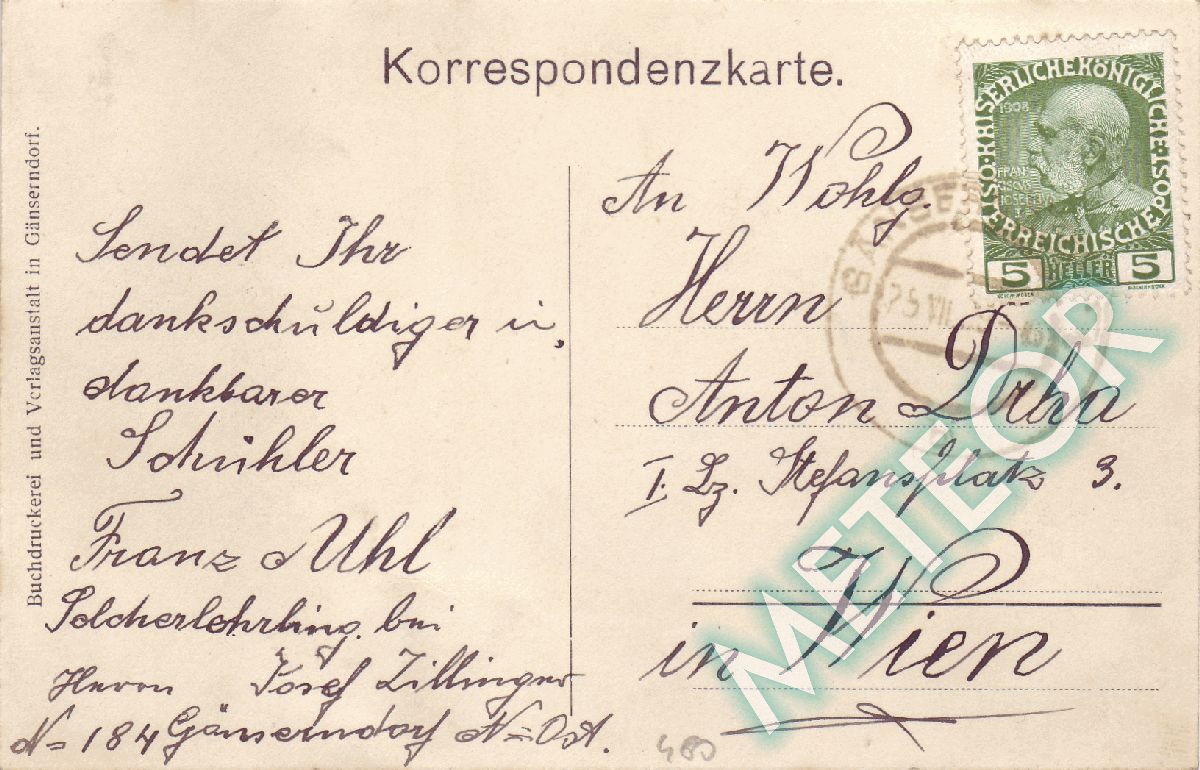 Korrespondenzkarte.
Buchdruckerei und Verlagsanstalt in Gänserndorf.
Sendet Ihr
dankschuldiger u.
dankbarer
Schühler
Franz Uhl
Selcherlehrling bei
Herrn Josef Zillinger
N= 184 Gänserndorf N=Ost.
An Wohlg.
Herrn
Anton Drha
I. Bz. Stefansplatz 3.
in Wien
480
KAISERLICHE KÖNIGLICHE ÖSTERREICHISCHE POST
1908
FRAN
CISCVS
IOSEF I
5 HELLER 5
GÄNSE
VII
METEOR